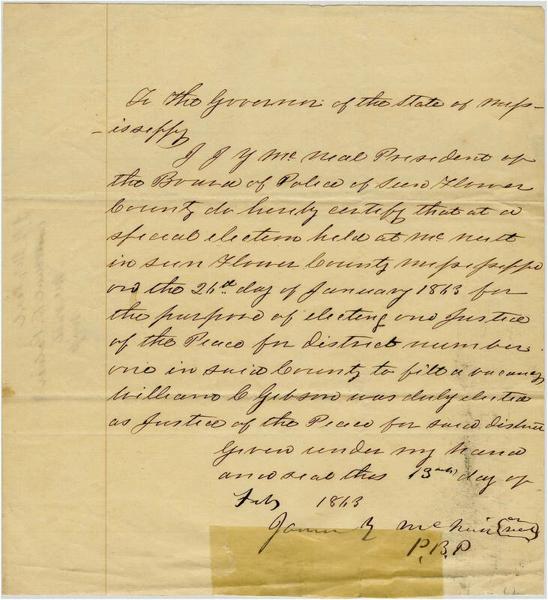 To the Governor of the State of Miss-
-issippy
I J Y McNeal President of
the Board of Police of Sun Flower
County do hereby certify that at a
special election held at McNutt
in Sun Flower County Mississippi
on the 26th day of January 1863 for
the purpose of electing one Justice
of the Peace for district number
one in said County to fill a vacancy
William C Gibson was duly elected
as Justice of the Peace for said district
Given under my hand
and seal this 13th day of
Feb 1863
James Y Mc
P.B.P